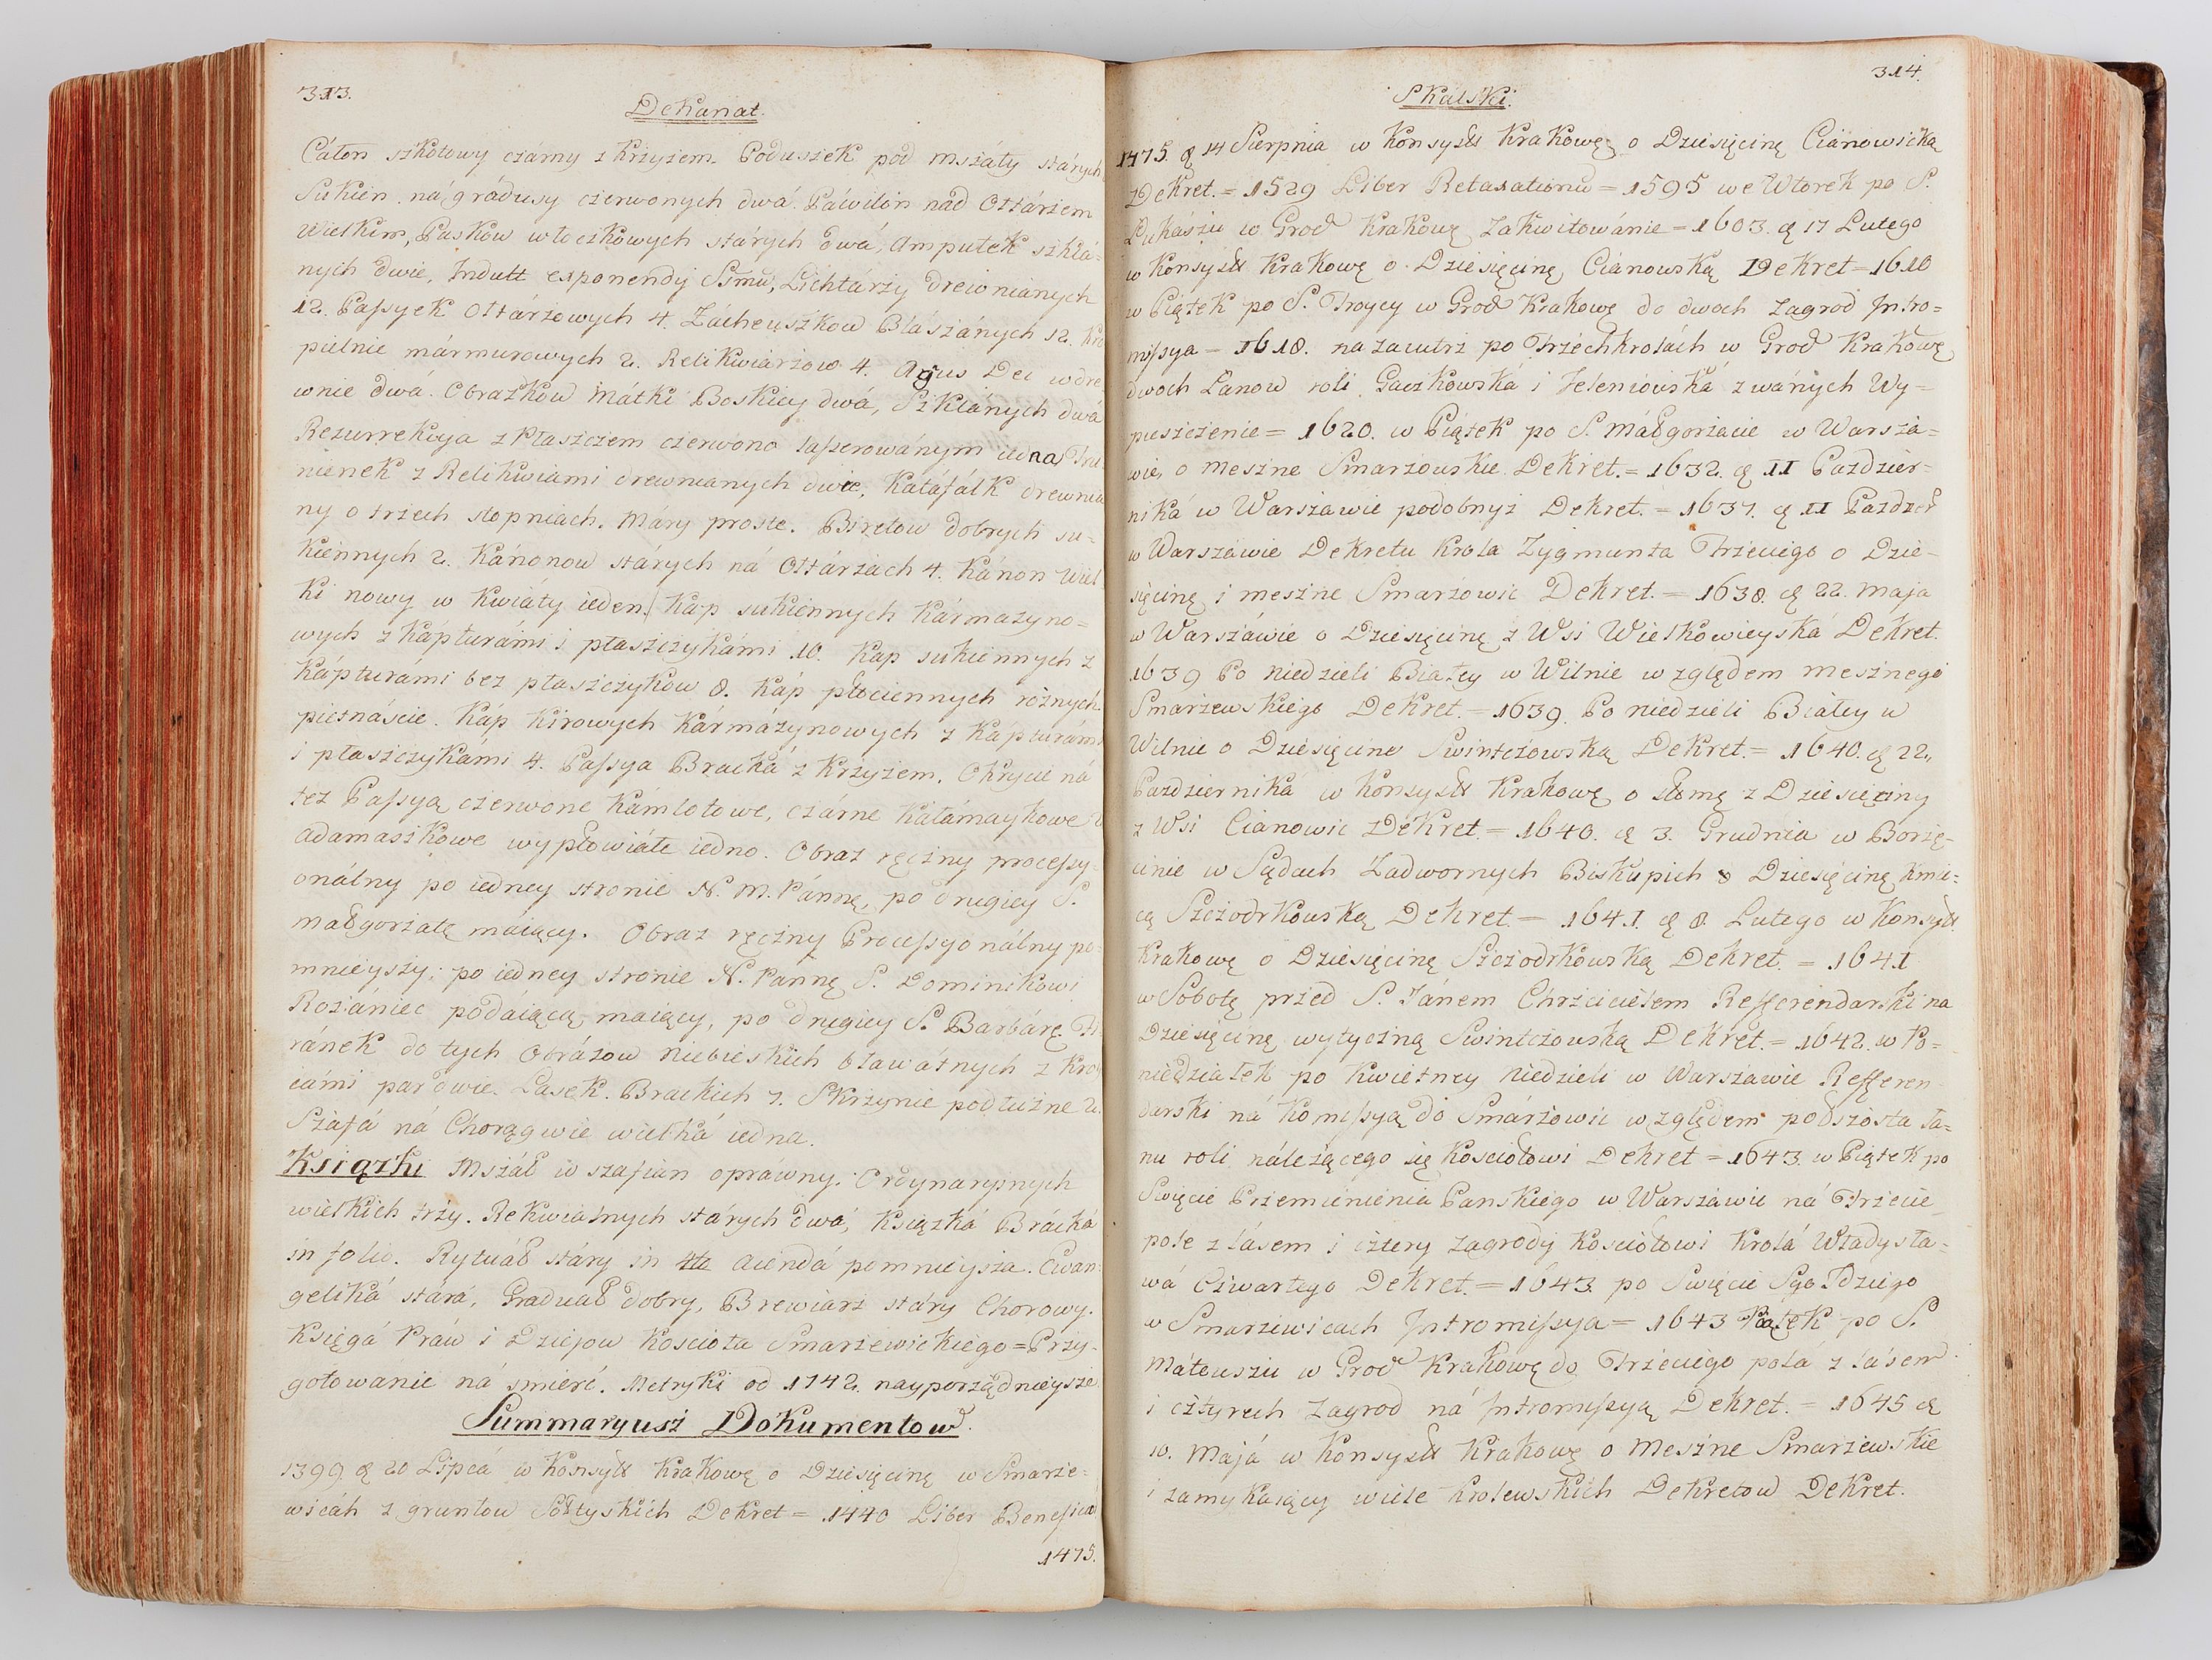 313.
Dekanat.
Cáłon szkotowy czárny z krzyżem. Poduszek pod mszáły stárych
Sukien ná grádusy czerwonych dwá. Páwilon nád Ołtárzem
Wielkim, Pásków włoczkowych stárych dwá, Ampułek szklá=
nych dwie, Indult exponendi Ssmu, Lichtárzy drewnianych
12. Passyek Ołtárzowych 4. Zácheuszkow Blászánych 12. Kro
pielnic mármurowych 2. Relikwiarzow 4. Agus Dei w dre
wnie dwá. Obrazkow Mátki Boskiey dwá, Szklánych dwá
Rezurrekcya z Płaszczem czerwono lasserowánym iedna Tru
nienek z Relikwiami drewnianych dwie, Katáfálk drewnia
ny o trzech stopniach. Máry proste. Biretow dobrych su=
kiennych 2. Kánonow stárych ná Ołtárzach 4. Kánon Wiel
ki nowy w kwiáty ieden. Kap sukiennych kármazyno=
wych z kápturámi i płaszczykámi 10. Kap sukiennych z
kápturámi bez płaszczykow 8. Káp płóciennych rożnych
pietnáście. Káp kirowych kármázynowych z kápturámi
i płaszczykámi 4. Passya Bracká z krzyżem. Okrycie ná
też Passyą czerwone kámlotowe, czárne kátámaykowe
adamaszkowe wypłowiáłe iedno. Obraz ręczny processy=
onálny po iedney stronie N. M. Pánnę, po drugiey S.
Małgorzatę maiący. Obraz ręczny Processyonálny po=
mnieyszy: po iedney stronie N. Pannę S. Dominikowi
Rozániec podáiącą maiący, po drugiey S. Barbárę. Fi
ránek do tych Obrázow niebieskich bławátnych z kro
cámi par dwie. Lasek Brackich 7. Skrzynie podłużne 2.
Száfá ná Chorągwie wielká iedna.
Ksiązki Mszáł w szafian opráwny. Ordynaryynych
wielkich trzy. Rekwialnych stárych dwá, Książká Brácká
in folio. Rytuáł stáry in 4to Aiendá pomnieysza. Ewan=
geliká stára, Graduał dobry, Brewiarz stáry Chorowy.
Księgá Práw i Dziejow Kościoła Smarzewickiego = Przy=
gotowánie ná śmierć. Metryki od 1742. nayporządnieysze
Summaryusz Dokumentow.
1399 d 20 Lipcá w Konsyst Krakowę o Dziesięcinę w Smarze=
wicáh z gruntow Sołtyskich Dekret = 1440 Liber Beneficio
1475.
314.
Skalski.
1475. d 14 Sierpnia w Konsyst Krakowę o Dziesięcinę Cianowicką
Dekret. = 1529 Liber Retaxationu = 1595 we Wtorek po S.
Łukászu w Grod Krakowę Zakwitowánie = 1603. d 17 Lutego
w Konsyst Krakowę o Dziesięcinę Cianowską Dekret = 1610
w Piątek po S. Troycy w Grod Krakowę do dwoch Zagrod Intro=
missya = 1618. nazaiutrz po Trzechkrolách w Grod Krakowę
dwoch Łanow roli Gaczkowská i Jeleniowská zwánych Wy=
puszczenie = 1620. w Piątek po S. Małgorzacie w Warsza=
wie, o meszne Smarzowskie Dekret. = 1632. d 11 Pazdzier=
niká w Warszawie podobnyż Dekret. = 1637. d 11 Pazdzier
w Warszáwie Dekretu Krola Zygmunta Trzeciego o Dzie=
sięcinę i meszne Smarzowic Dekret. = 1638. d 22. Maja
w Warszáwie o Dziesięcinę z Wsi Wielkowieyská Dekret.
1639 Po niedzieli Białey w Wilnie względem mesznego
Smarzewskiego Dekret. = 1639. Po niedzieli Białey w
Wilnie o Dziesięcine Swintczowską Dekret. = 1640. d 22.
Pazdziernika w Konsyst Krakowę o słomę z Dziesięciny
z Wsi Cianowic Dekret. = 1640. d 3. Grudnia w Borzę=
cinie w Sądach Zadwornych Biskupich o Dziesięcinę kmie=
cą Szczodrkowską Dekret = 1641. d 8. Lutego w Konsyst
Krakowę o Dziesięcinę Szczodrkowską Dekret. = 1641
w Sobotę przed S. Jánem Chrzcicielem Refferendarski na
Dziesięcinę wytyczną Swintczowską Dekret. = 1642. w Po=
niedziałek po Kwietney Niedzieli w Warszawie Refferen
darski ná Komissyą do Smárzowic względem połszosta Ła=
nu roli náleżącego się Kościołowi Dekret = 1643. w Piątek po
Swięcie Przemienienia Panskiego w Warszáwie ná Trzecie
pole z lásem i cztery Zagrody Kościołowi Krolá Władysła=
wá Czwartego Dekret. = 1643. po Swięcie Sgo Idziego
w Smarzewicach Intromissya = 1643 Piątek po S.
Máteuszu w Grod Krakowę do Trzeciego polá z lásem
i cztyrech Zagrod ná Intromissyą Dekret. = 1645 d
10. Majá w Konsyst Krakowę o Meszne Smarzewskie
i zamykaiący wiele Krolewskich Dekretow Dekret.